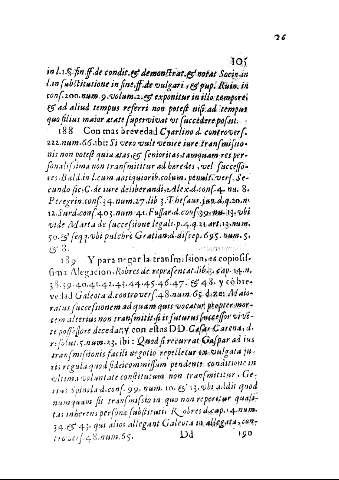 26
105
in l.1.§. fin. ff. de condit. & demonstrat. & notat Socin. in
l. in substitutione in fine, ff. de vulgari, & pup. Ruin. in
cons. 200. num. 9. volum. 2. & exponitur in illo tempore,
& ad aliud tempus referri non potest nisi, ad tempus
quo filius maior ætate supervivat ut succedere possit.
188 Con mas brevedad Cyarlino d. controvers.
222. num. 66. ibi: Si vero vult venire iure transmissio-
nis non potest quia ætas, & senioritas tamquam res per-
sonalissima non transmittitur ad heredes, vel successo-
res. Bald. in l. cum antiquioribus. colum. penult. vers. Se-
cundo sic, C. de iure deliberandi, Alex. d. cons. 4. nu. 8.
Peregrin. cons. 34. num. 27. lib. 3. Thesaur. jun. d. q. 20. n.
12. Surd. cons. 403. num. 41. Fussar. d. cons. 39. nu. 13. ubi
vide Marta de successione legali. p. 4. q. 21. art. 13. num.
50. & seqq. ubi pulchre Gratian. d. discep. 695. num. 5.
& 8.
189 Y para negar la transmission, es copiosis-
sima Alegacion, Robres de representat. lib. 3. cap. 14. n.
38. 39. 40. 41. 42. 43. 44. 45. 46. 47. & 48. y có bre-
vedad Galeota d. controvers. 48. num. 65. d. 2. Maio-
ratus successionem ad quam quis vocatur, propter mor-
tem alterius non transmittit, si is futurus successor viven-
te possessore decedat, y con estas DD. Caesar Carena, d.
resolut. 5. num. 23. ibi: Quod si recurrat Gaspar ad ius
transmissionis facili negotio repelletur in vulgata iu-
ris regula quod fideicommissum pendente conditione in
ultima voluntate constitutum non transmittitur. Ge-
sius Spinola d. cons. 99. num. 10. & 13. ubi addit quod
nunquam fit transmissio in quo non reperitur quali-
tas inherens personæ substituti. Robres d. cap. 14. num.
34. & 43. qui alios allegant Galeota in allegata, con-
trovers. 48. num. 65.
Dd 190